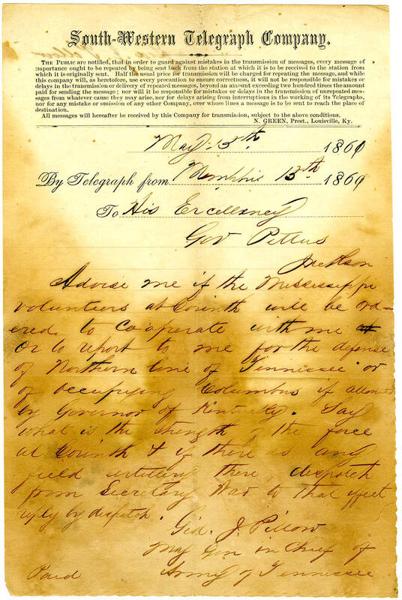 South-Western Telegraph Company.
THE PUBLIC are notified, that in order to guard against mistakes in the transmission of messages, every message of
importance ought to be repeated by being sent back from the station at which it is to be received to the station from
which it is originally sent. Half the usual price for transmission will be charged for repeating the message, and while
this company will, as heretofore, use every precaution to ensure correctness, it will not be responsible for mistakes or
delays in the transmission or delivery of repeated messages, beyond an amount exceeding two hundred times the amount
paid for sending the message; nor will it be responsible for mistakes or delays in the transmission of unrepeated messages
from whatever cause they may arise, nor for delays arising from interruptions in the working of its Telegraphs,
nor for any mistake or omission of any other Company, over whose lines a message is to be sent to reach the place of
destination.
All messages will hereafter be received by this Company for transmission, subject to the above conditions.
N. GREEN, Prest., Louisville, Ky.
May 13th 1860
By Telegraph from Memphis 13th 1860
To His Excellency
Gov Pettus
Jackson
Advise me if the Mississippi
volunteers at Corinth will be ord-
ered to Cooperate with me
or to report to me for the defense
of Northern line of Tennessee or
of occupying Columbus if allowed
by Governor of Kentucky. Say
what is the strength of the force
at Corinth & if there is any
field artillery there, dispatch
from Secretary War to that effect
reply by dispatch
Gid. J. Pillow
Maj Gen in Chief of
Paid Army of Tennessee